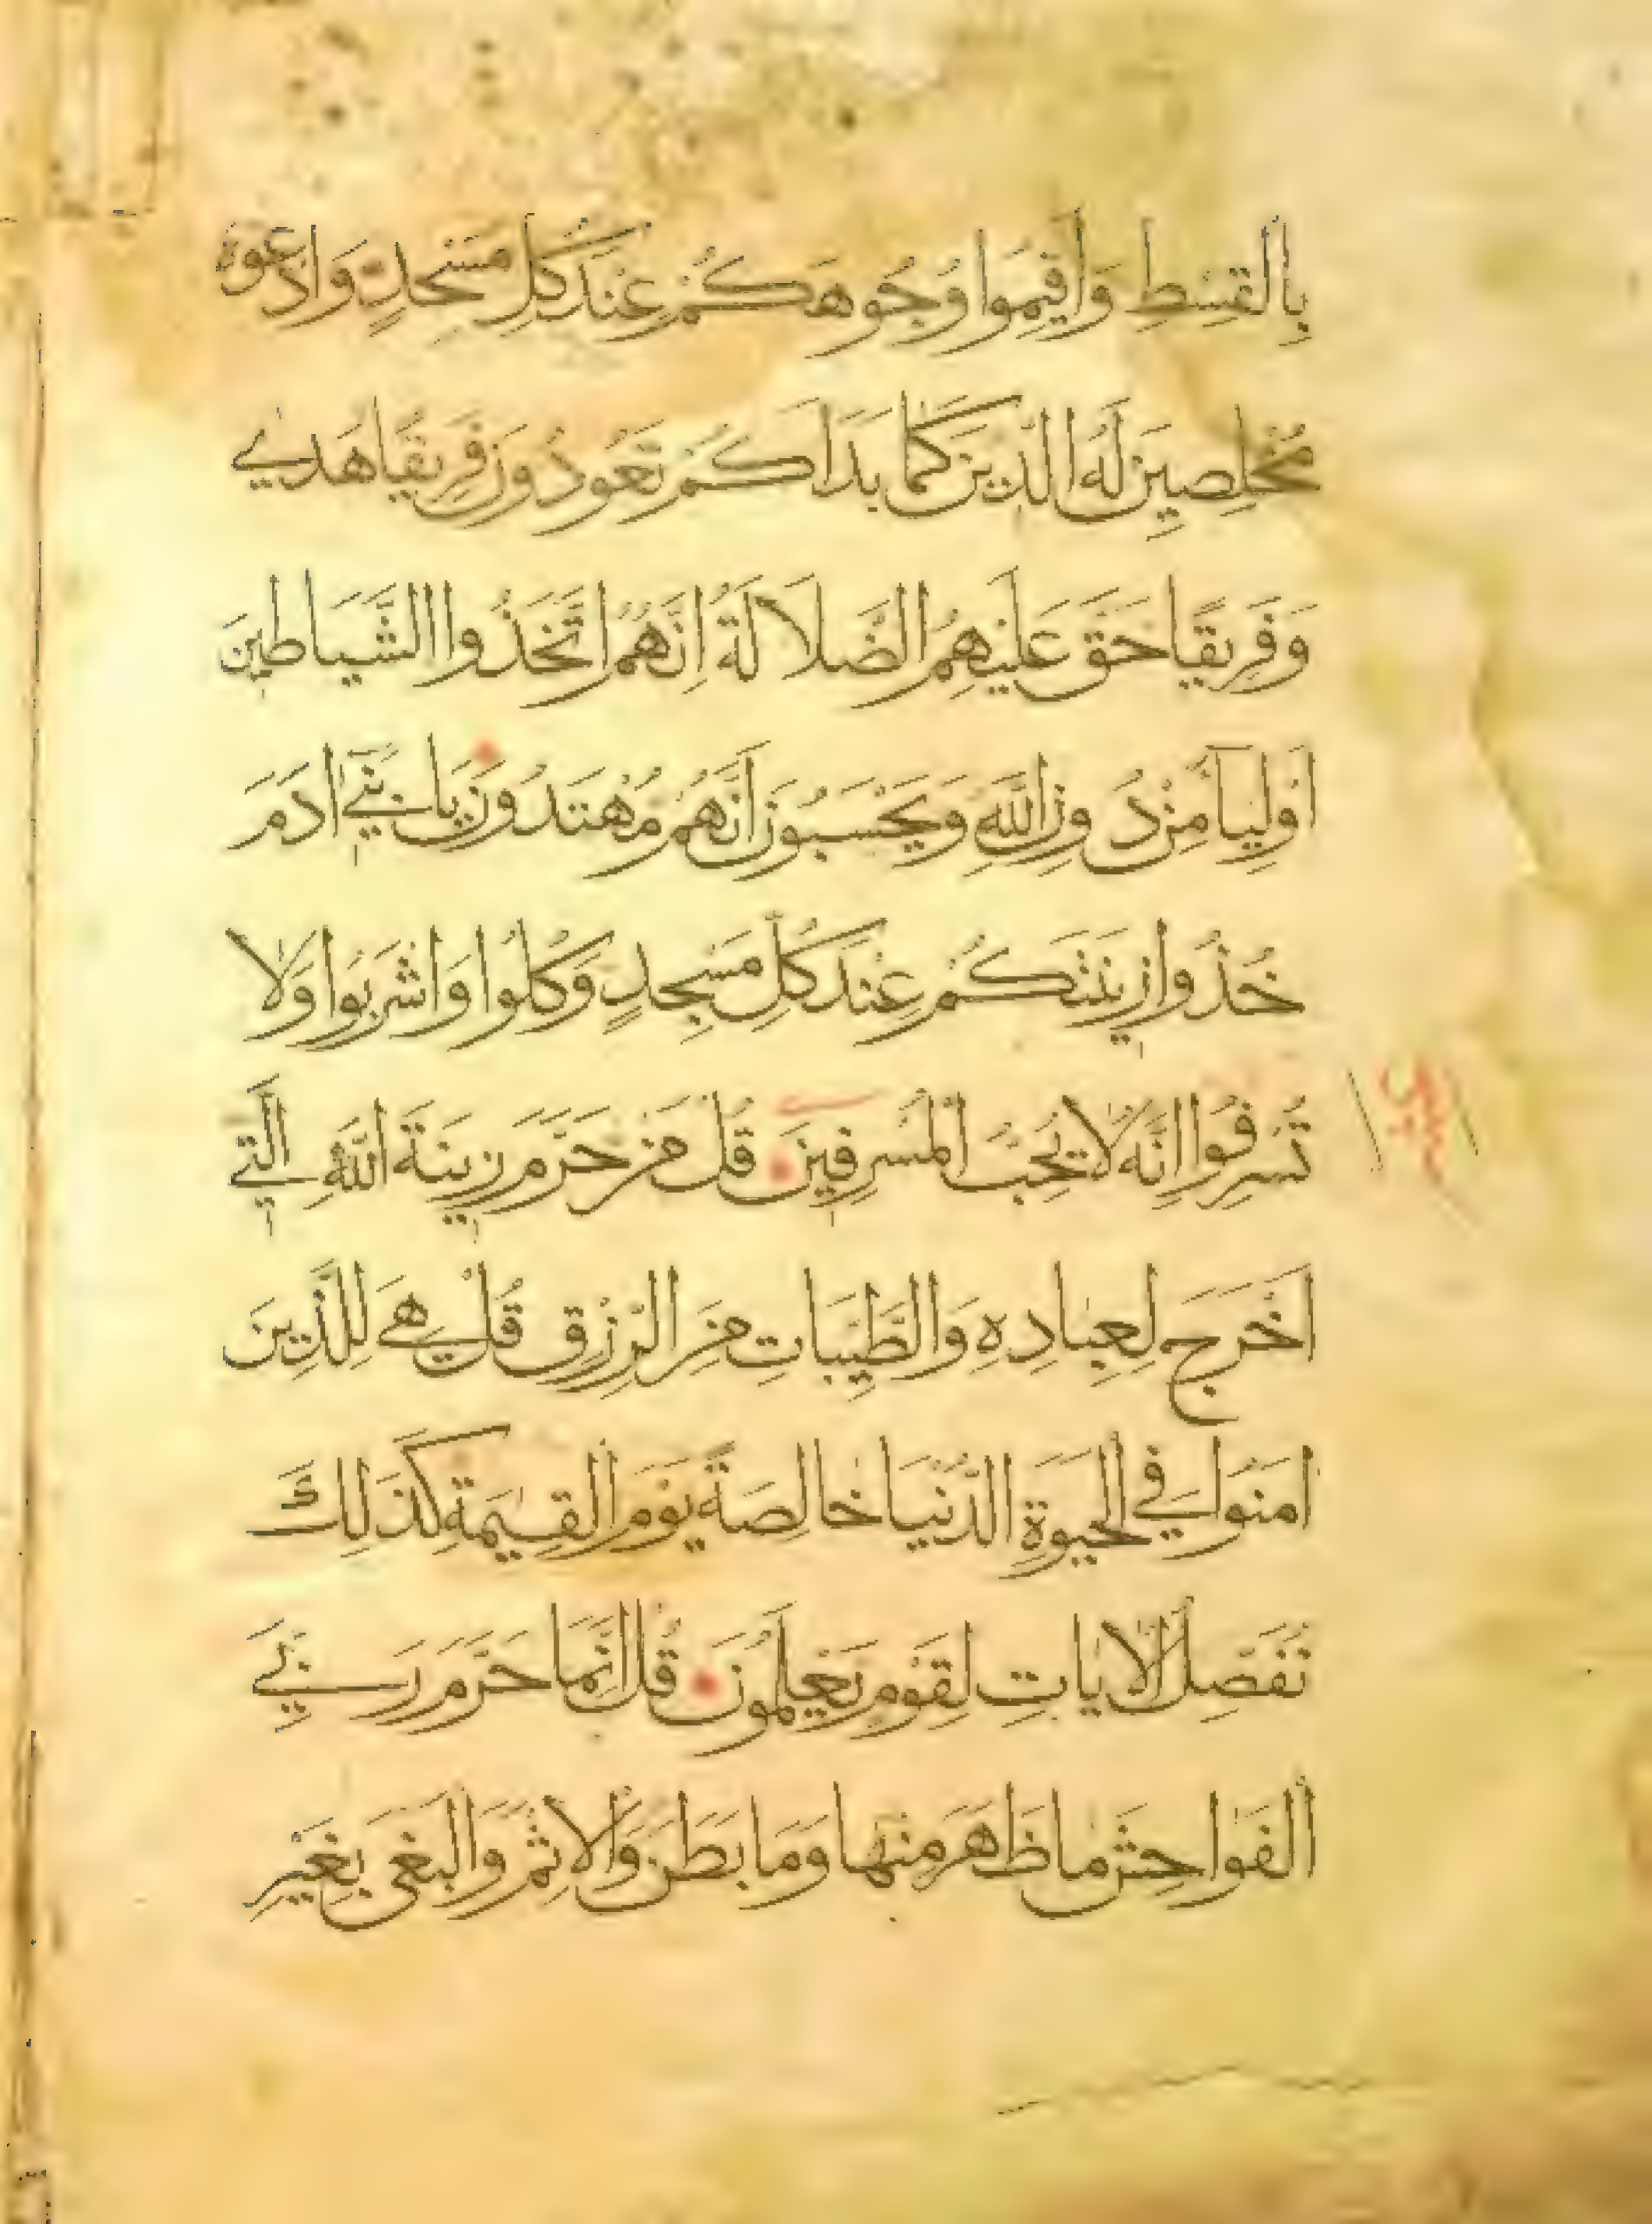 بِالقِسْطِ وَاَقِيمُوا وُجُوهَكُمْ عِنْدَ كُلِّ مَسْجِدٍ وَادْعُوهُ
مُخْلِصِينَ لَهُ الدِّينَ كَمَا بَدَاَكُمْ تَعُودُونَ فَرِيقًا هَدٰي
وَفَرِيقًا حَقَّ عَلَيْهِمُ الضَّلَالَةُ اِنَّهُمُ اتَّخَذُوا الشَّيَاطِينَ
اَوْلِيَآءَ مِنْ دُونِ اللَّهِ وَيَحْسَبُونَ اَنَّهُمْ مُهْتَدُونَ يَا بَنِيٓ اٰدَمَ
خُذُوا زِينَتَكُمْ عِنْدَ كُلِّ مَسْجِدٍ وَكُلُوا وَاشْرَبُوا وَلَا
تُسْرِفُوا اِنَّهُ لَا يُحِبُّ الْمُسْرِفِينَ قُلْ مَنْ حَرَّمَ زِينَةَ اللَّهِ الَّتِي
اَخْرَجَ لِعِبَادِهِ وَالطَّيِّبَاتِ مِنَ الرِّزْقِ قُلْ هِيَ لِلَّذِينَ
اٰمَنُوا فِي الْحَيٰوةِ الدُّنْيَا خَالِصَةً يَوْمَ الْقِيٰمَةِ كَذَلِكَ
نُفَصِّلُ الْاٰيَاتِ لِقَوْمٍ يَعْلَمُونَ قُلْ اِنَّمَا حَرَّمَ رَبِّيَ
الْفَوَاحِشَ مَا ظَهَرَ مِنْهَا وَمَا بَطَنَ وَالْاِثْمَ وَالْبَغْيَ بِغَيْرِ